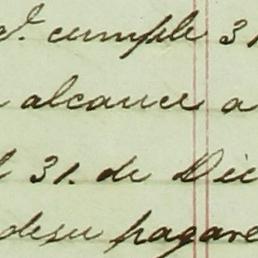 d. cumple 31
alcance a
l 31. de Dic
desu pagare